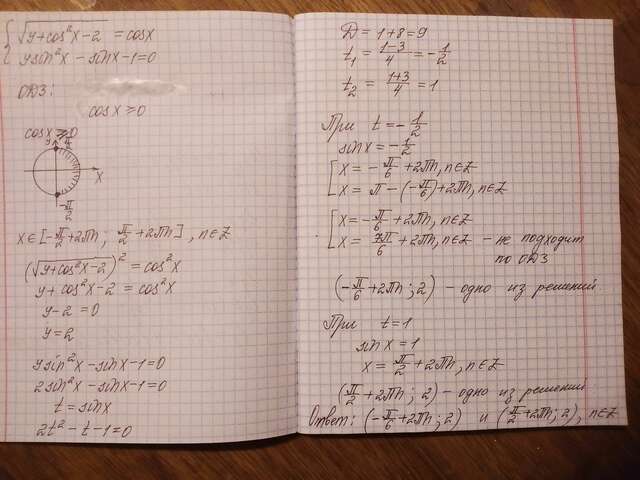 { √(y+cos²x-2) = cosx
ysin²x - sinx-1=0
ОДЗ:
cosx ≥0
cosx ≥0
y
π/2
x
-π/2
x∈[-π/2+2πn; π/2+2πn], n∈Z
(√(y+cos²x-2))² = cos²x
y+cos²x-2 = cos²x
y-2 =0
y=2
ysin²x-sinx-1=0
2sin²x-sinx-1=0
t=sinx
2t²-t-1=0
D=1+8=9
t₁=(1-3)/4=-1/2
t₂=(1+3)/4=1
При t=-1/2
sinx=-1/2
[ x=-π/6+2πn, n∈Z
x=π-(-π/6)+2πn, n∈Z
[ x=-π/6+2πn, n∈Z
x=7π/6+2πn, n∈Z - не подходит
по ОДЗ
(-π/6+2πn; 2) - одно из решений.
При t=1
sinx=1
x=π/2+2πn, n∈Z
(π/2+2πn; 2) - одно из решений
Ответ: (-π/6+2πn; 2) и (π/2+2πn; 2), n∈Z